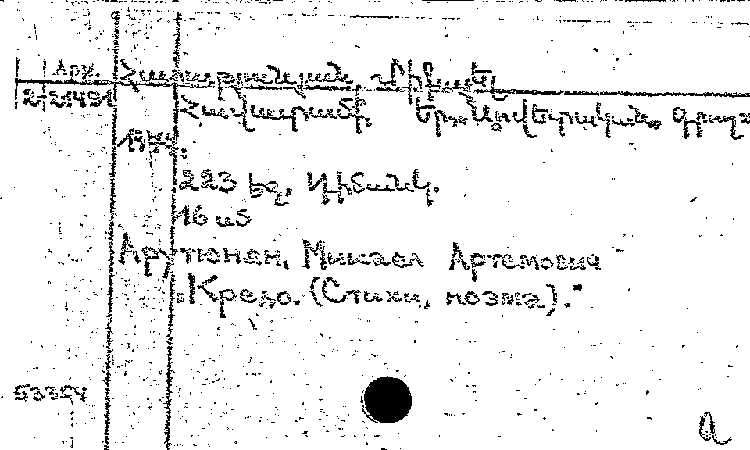 Арм. Հարությունյան, Միքայել
2-21491 Հավատամք. Եր., Սովետական գրող,
1977.
223 էջ, դիմանկ.
16 սմ
Арутюнян, Микаел Артемович
"Кредо. (Стихи, поэма)."
53354
a